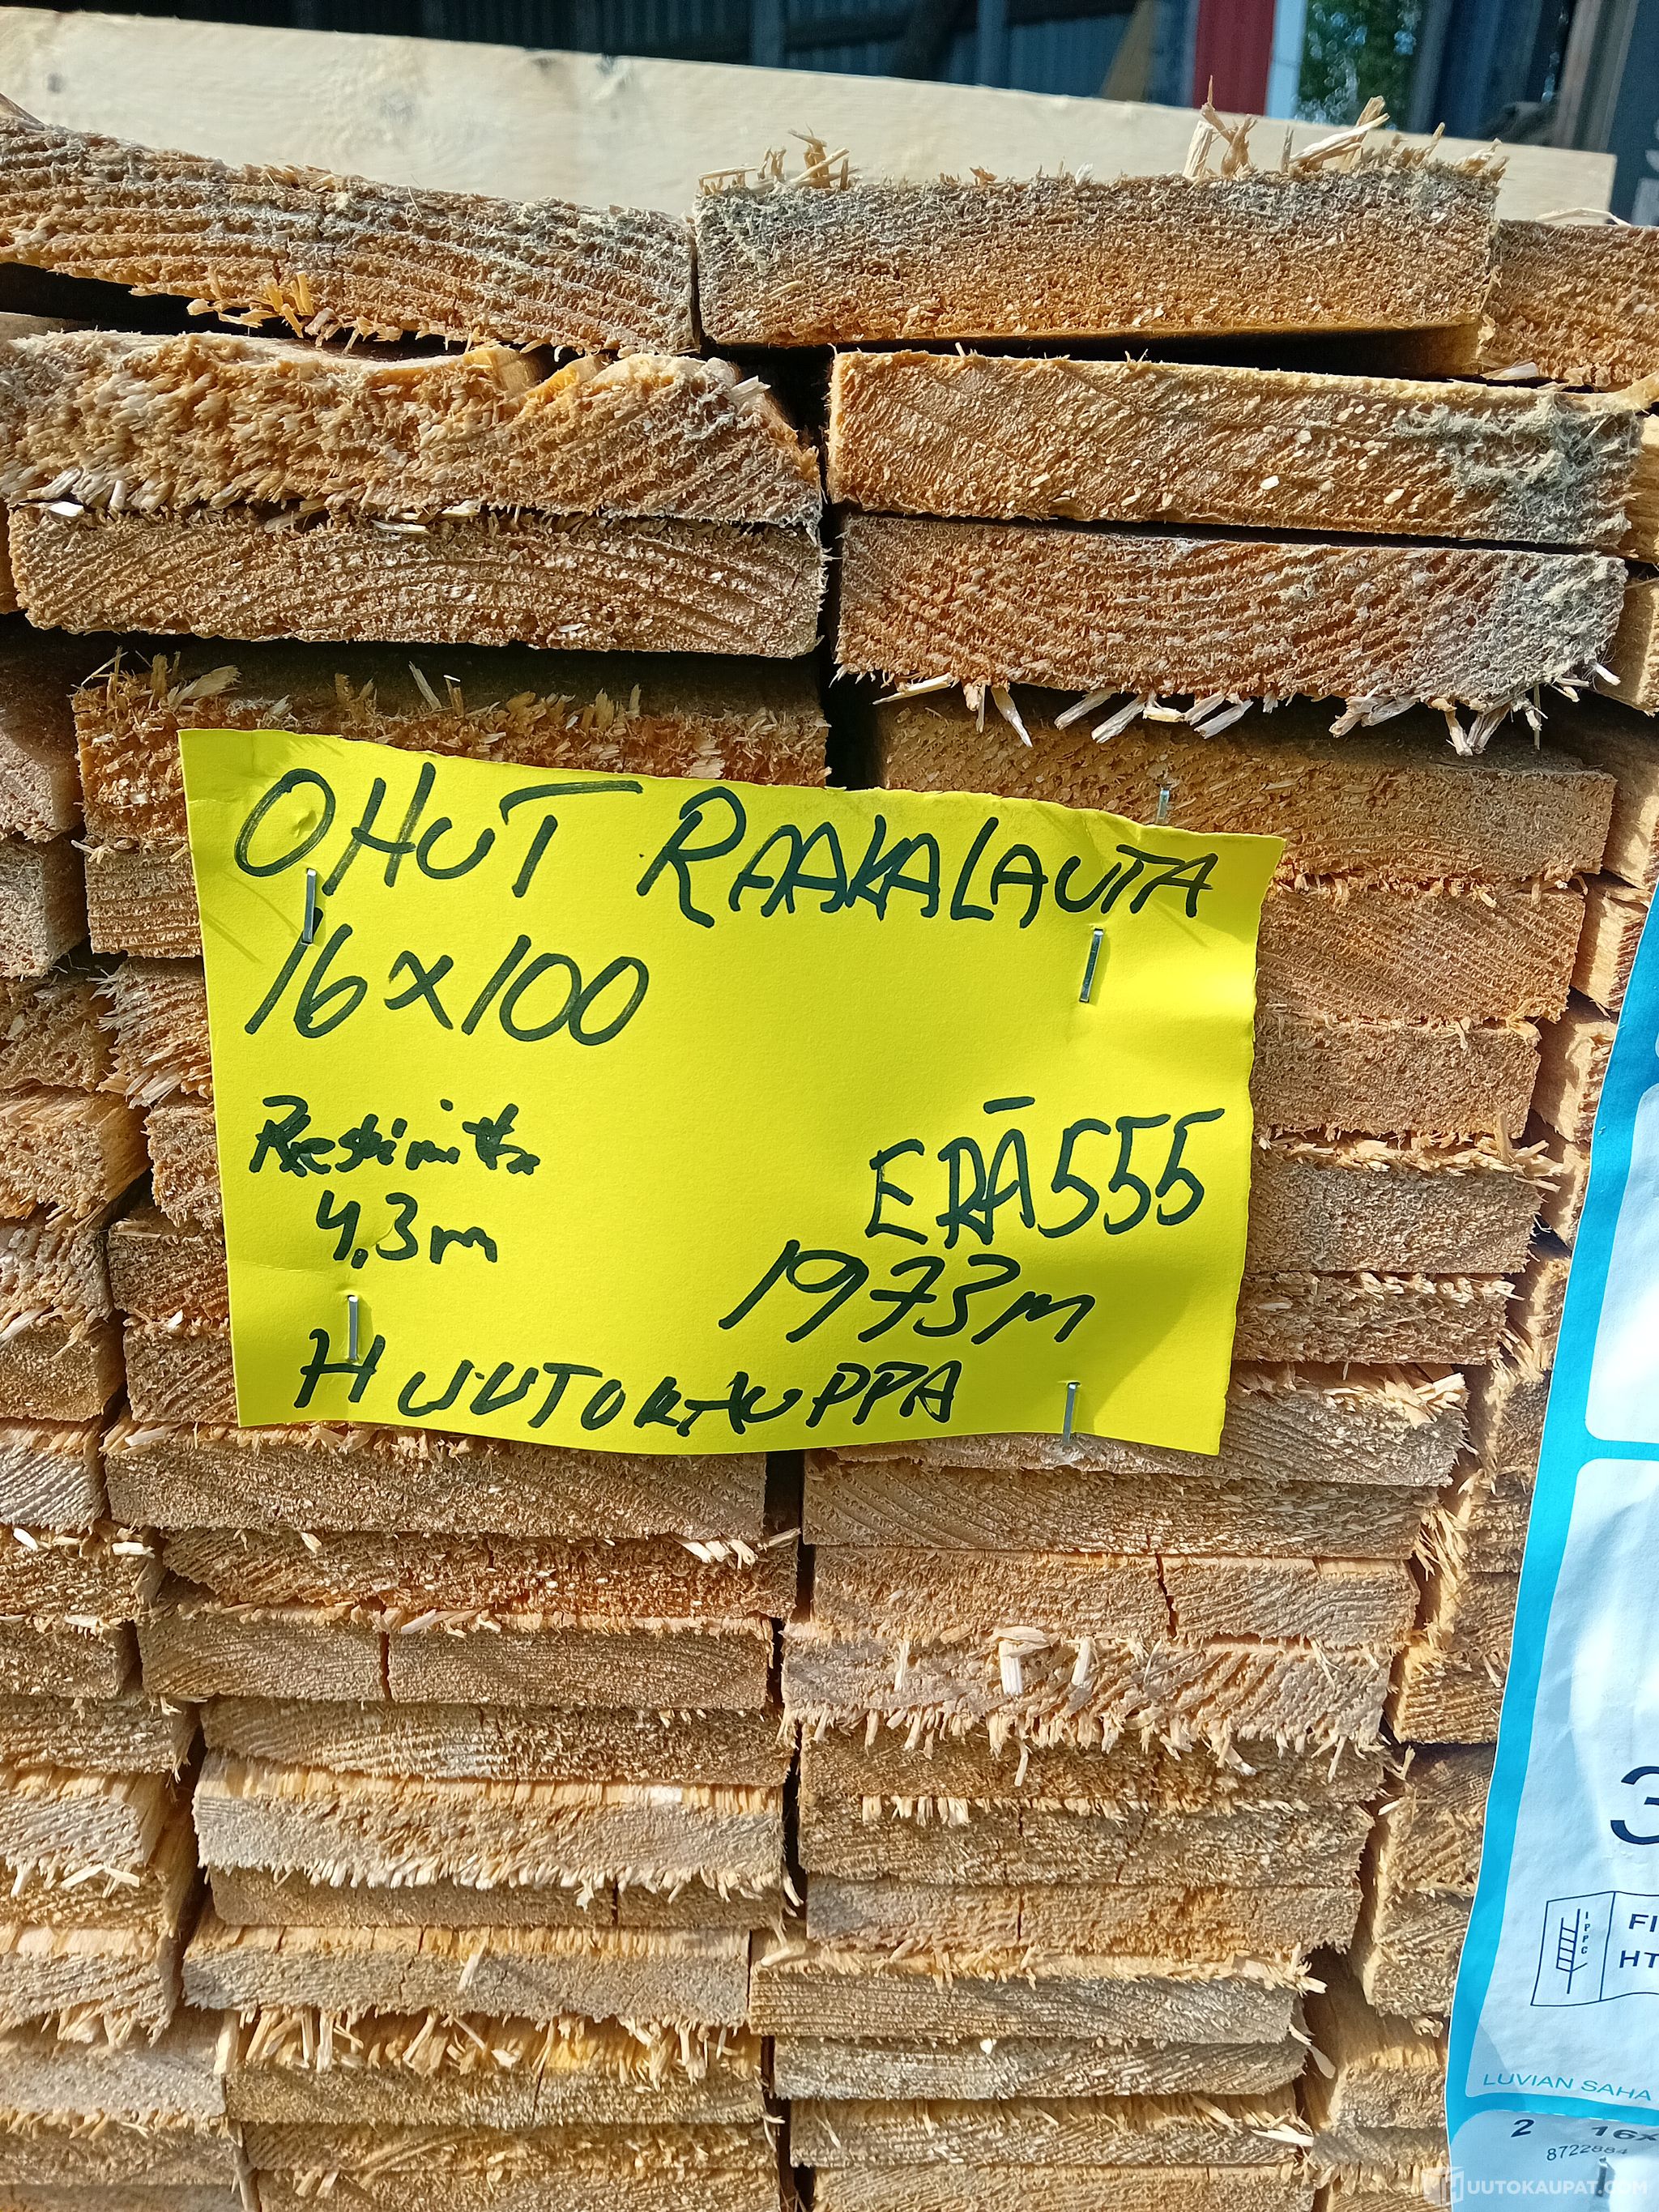 OHUT RAAKALAUTA
16x100
Keskimitta
4,3m
ERÄ 555
1973m
HUUTOKAUPPA
3
IPPC
FI
HT
LUVIAN SAHA
2 16x
8722884
HUUTOKAUPAT.COM